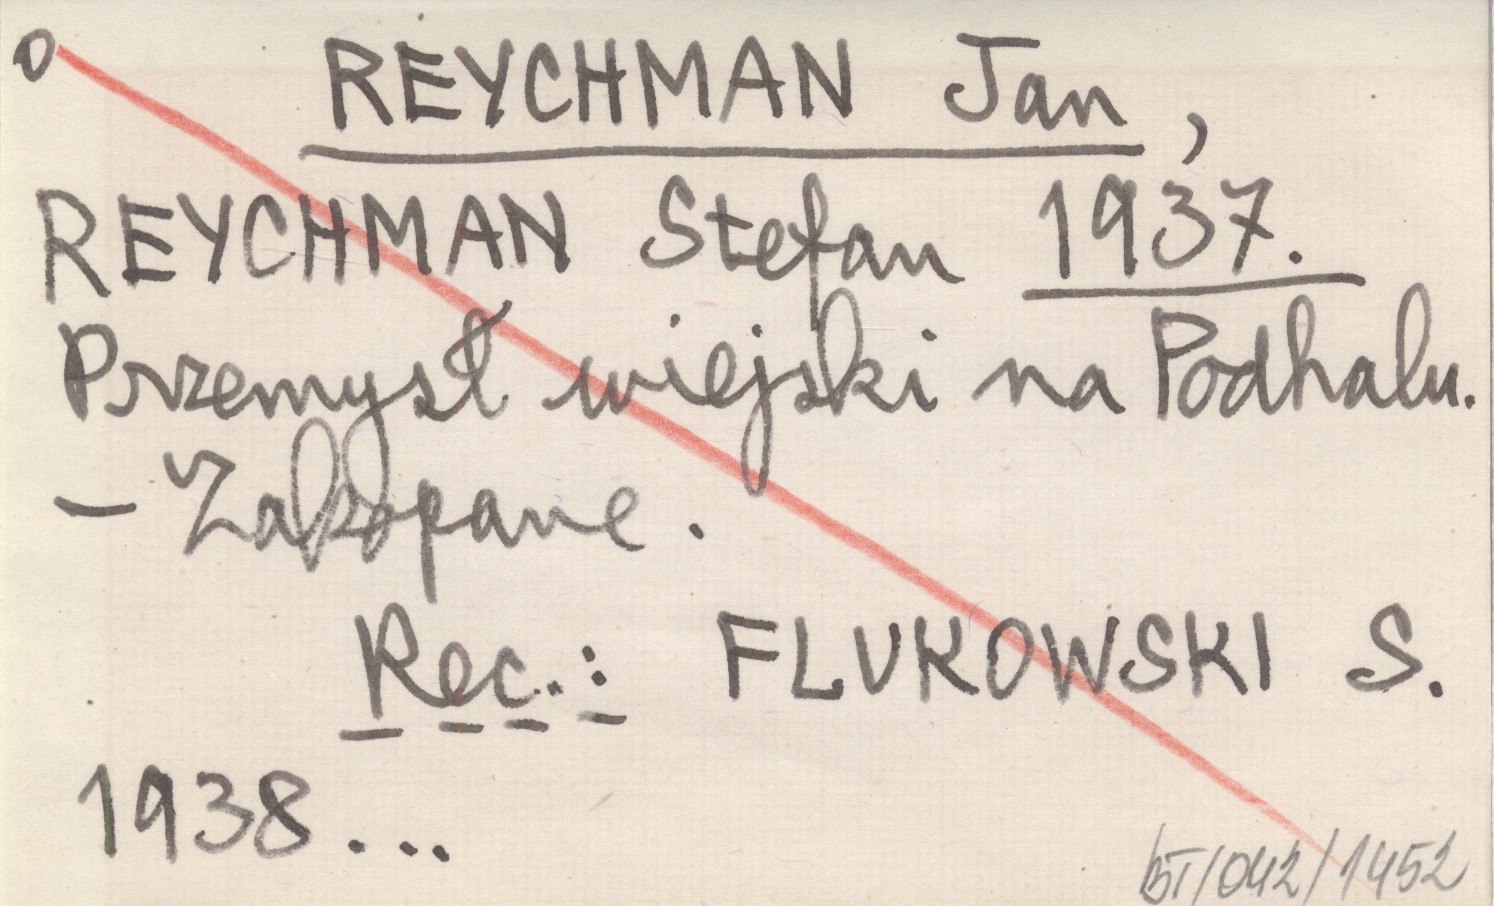 O
REYCHMAN Jan,
REYCHMAN Stefan 1937.
Przemysł wiejski na Podhalu.
– Zakopane.
Rec.: FLUKOWSKI S.
1938...
bT/042/1452